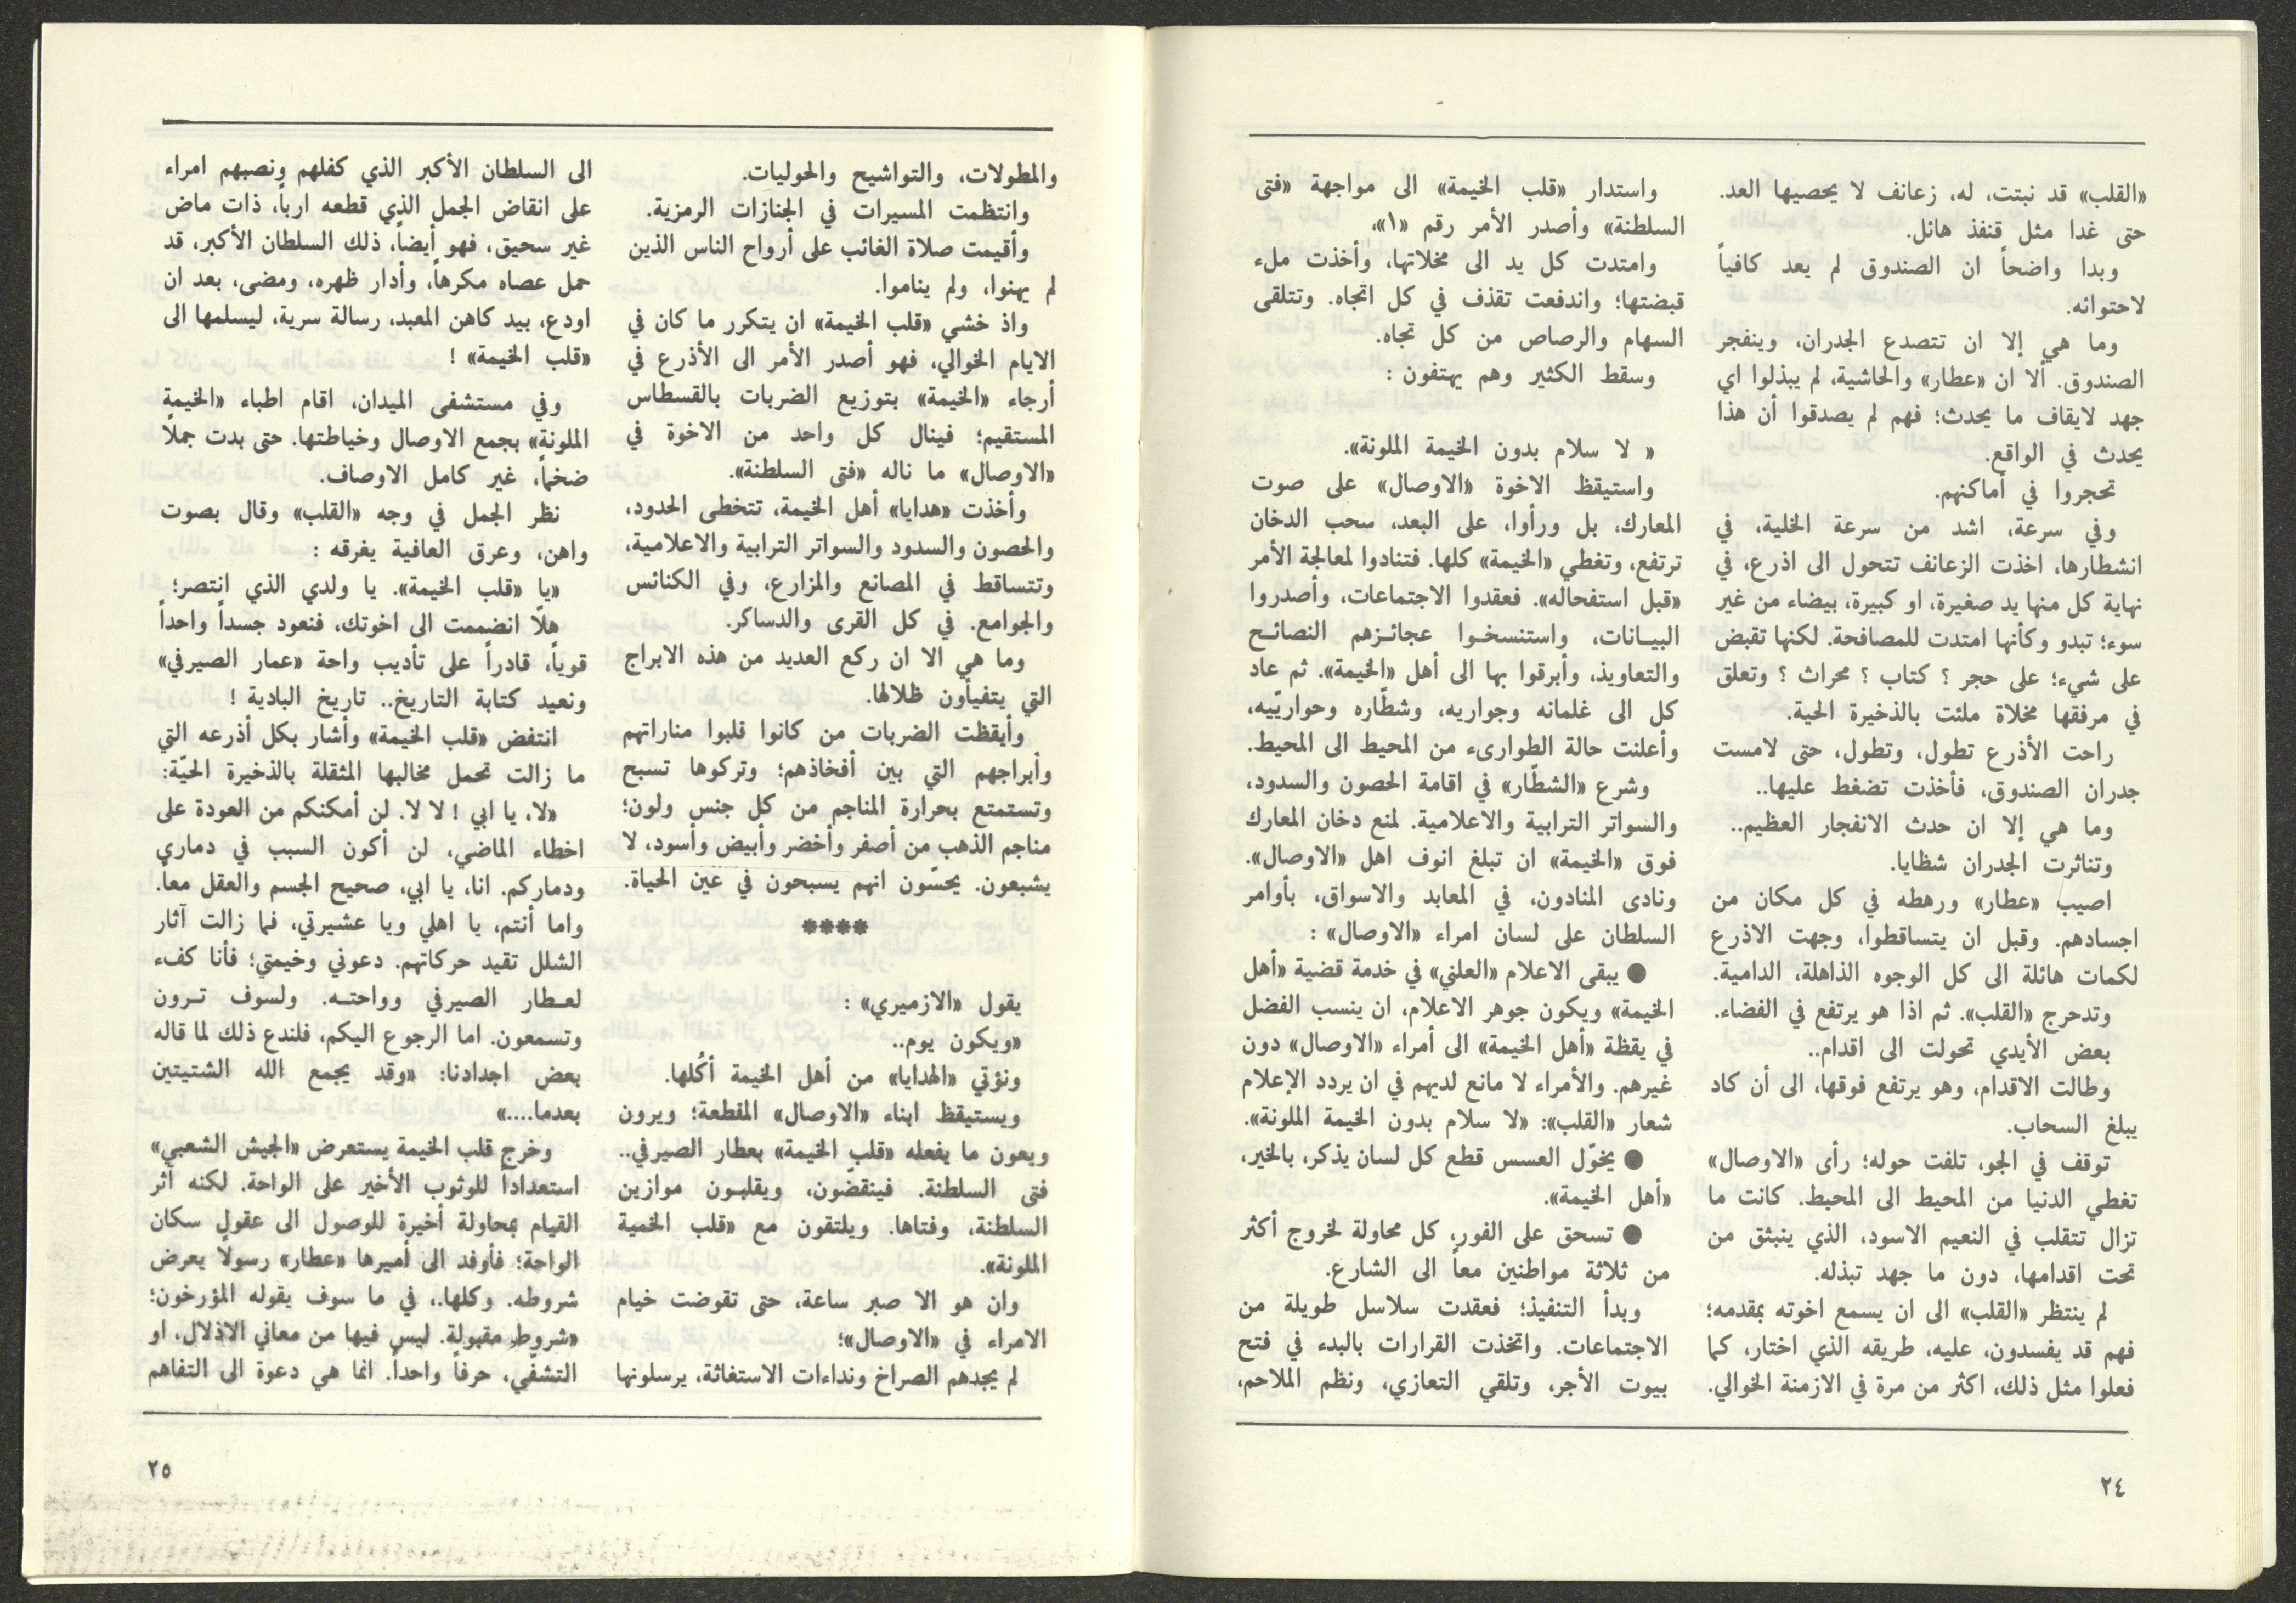 «القلب» قد نبتت، له، زعانف لا يحصيها العد.
حتى غدا مثل قنفذ هائل.
وبدا واضحاً ان الصندوق لم يعد كافياً
لاحتوائه.
وما هي إلا ان تتصدع الجدران، وينفجر
الصندوق. ألا ان «عطار» والحاشية، لم يبذلوا اي
جهد لايقاف ما يحدث؛ فهم لم يصدقوا أن هذا
يحدث في الواقع.
تحجروا في أماكنهم.
وفي سرعة، اشد من سرعة الخلية، في
انشطارها، اخذت الزعانف تتحول الى اذرع، في
نهاية كل منها يد صغيرة، او كبيرة، بيضاء من غير
سوء؛ تبدو وكأنها امتدت للمصافحة. لكنها تقبض
على شيء؛ على حجر ؟ كتاب ؟ محراث ؟ وتعلق
في مرفقها مخلاة ملئت بالذخيرة الحية.
راحت الأذرع تطول، وتطول، حتى لامست
جدران الصندوق، فأخذت تضغط عليها..
وما هي إلا ان حدث الانفجار العظيم..
وتناثرت الجدران شظايا.
اصيب «عطار» ورهطه في كل مكان من
اجسادهم. وقبل ان يتساقطوا، وجهت الاذرع
لكمات هائلة الى كل الوجوه الذاهلة، الدامية.
وتدحرج «القلب». ثم اذا هو يرتفع في الفضاء.
بعض الأيدي تحولت الى اقدام..
وطالت الاقدام، وهو يرتفع فوقها، الى أن كاد
يبلغ السحاب.
توقف في الجو، تلفت حوله؛ رأى «الاوصال»
تغطي الدنيا من المحيط الى المحيط. كانت ما
تزال تتقلب في النعيم الاسود، الذي ينبثق من
تحت اقدامها، دون ما جهد تبذله.
لم ينتظر «القلب» الى ان يسمع اخوته بمقدمه؛
فهم قد يفسدون، عليه، طريقه الذي اختار، كما
فعلوا مثل ذلك، اكثر من مرة في الازمنة الخوالي.
واستدار «قلب الخيمة» الى مواجهة «فتى
السلطنة» وأصدر الأمر رقم «١»،
وامتدت كل يد الى مخلاتها، وأخذت ملء
قبضتها؛ واندفعت تقذف في كل اتجاه. وتتلقى
السهام والرصاص من كل تجاه.
وسقط الكثير وهم يهتفون :
« لا سلام بدون الخيمة الملونة».
واستيقظ الاخوة «الاوصال» على صوت
المعارك، بل ورأوا، على البعد، سحب الدخان
ترتفع، وتغطي «الخيمة» كلها. فتنادوا لمعالجة الأمر
«قبل استفحاله». فعقدوا الاجتماعات، وأصدروا
البيـانات، واستنسخـوا عجائـزهم النصائـح
والتعاويذ، وأبرقوا بها الى أهل «الخيمة». ثم عاد
كل الى غلمانه وجواريه، وشطّاره وحواريّيه،
وأعلنت حالة الطوارىء من المحيط الى المحيط.
وشرع «الشطّار» في اقامة الحصون والسدود،
والسواتر الترابية والاعلامية. لمنع دخان المعارك
فوق «الخيمة» ان تبلغ انوف اهل «الاوصال».
ونادى المنادون، في المعابد والاسواق، بأوامر
السلطان على لسان امراء «الاوصال» :
● يبقى الاعلام «العلني» في خدمة قضية «أهل
الخيمة» ويكون جوهر الاعلام، ان ينسب الفضل
في يقظة «أهل الخيمة» الى أمراء «الاوصال» دون
غيرهم. والأمراء لا مانع لديهم في ان يردد الإعلام
شعار «القلب»: «لا سلام بدون الخيمة الملونة».
● يخوّل العسس قطع كل لسان يذكر، بالخير،
«أهل الخيمة».
● تسحق على الفور، كل محاولة لخروج أكثر
من ثلاثة مواطنين معاً الى الشارع.
وبدأ التنفيذ؛ فعقدت سلاسل طويلة من
الاجتماعات. واتخذت القرارات بالبدء في فتح
بيوت الأجر، وتلقي التعازي، ونظم الملاحم،
٢٤
والمطولات، والتواشيح والحوليات.
وانتظمت المسيرات في الجنازات الرمزية.
وأقيمت صلاة الغائب على أرواح الناس الذين
لم يهنوا، ولم يناموا.
واذ خشي «قلب الخيمة» ان يتكرر ما كان في
الايام الخوالي، فهو أصدر الأمر الى الأذرع في
أرجاء «الخيمة» بتوزيع الضربات بالقسطاس
المستقيم؛ فينال كل واحد من الاخوة في
«الاوصال» ما ناله «فتى السلطنة».
وأخذت «هدايا» أهل الخيمة، تتخطى الحدود،
والحصون والسدود والسواتر الترابية والاعلامية،
وتتساقط في المصانع والمزارع، وفي الكنائس
والجوامع. في كل القرى والدساكر.
وما هي الا ان ركع العديد من هذه الابراج
التي يتفيأون ظلالها.
وأيقظت الضربات من كانوا قلبوا مناراتهم
وأبراجهم التي بين أفخاذهم؛ وتركوها تسبح
وتستمتع بحرارة المناجم من كل جنس ولون؛
مناجم الذهب من أصفر وأخضر وأبيض وأسود، لا
يشبعون. يحسّون انهم يسبحون في عين الحياة.
****
يقول «الازميري» :
«ويكون يوم..
ونؤتي «الهدايا» من أهل الخيمة أكُلها.
ويستيقظ ابناء «الاوصال» المقطعة؛ ويرون
ويعون ما يفعله «قلب الخيمة» بعطار الصيرفي..
فتى السلطنة. فينقضّون، ويقلبـون موازين
السلطنة، وفتاها. ويلتقون مع «قلب الخمية
الملونة».
وان هو الا صبر ساعة، حتى تقوضت خيام
الامراء في «الاوصال»؛
لم يجدهم الصراخ ونداءات الاستغاثة، يرسلونها
الى السلطان الأكبر الذي كفلهم ونصبهم امراء
على انقاض الجمل الذي قطعه ارباً، ذات ماض
غير سحيق، فهو أيضاً، ذلك السلطان الأكبر، قد
حمل عصاه مكرهاً، وأدار ظهره، ومضى، بعد ان
اودع، بيد كاهن المعبد، رسالة سرية، ليسلمها الى
«قلب الخيمة» !
وفي مستشفى الميدان، اقام اطباء «الخيمة
الملونة» بجمع الاوصال وخياطتها. حتى بدت جملًا
ضخماً، غير كامل الاوصاف.
نظر الجمل في وجه «القلب» وقال بصوت
واهن، وعرق العافية يغرقه :
«يا «قلب الخيمة». يا ولدي الذي انتصر؛
هلّا انضممت الى اخوتك، فنعود جسداً واحداً
قوياً، قادراً على تأديب واحة «عمار الصيرفي»
ونعيد كتابة التاريخ.. تاريخ البادية !
انتفض «قلب الخيمة» وأشار بكل أذرعه التي
ما زالت تحمل مخالبها المثقلة بالذخيرة الحيّة:
«لا، يا ابي ! لا لا. لن أمكنكم من العودة على
اخطاء الماضي، لن أكون السبب في دماري
ودماركم. انا، يا ابي، صحيح الجسم والعقل معاً.
واما أنتم، يا اهلي ويا عشيرتي، فما زالت آثار
الشلل تقيد حركاتهم. دعوني وخيمتي؛ فأنا كفء
لعـطار الصيرفي وواحتــه. ولسوف تـرون
وتسمعون. اما الرجوع اليكم، فلندع ذلك لما قاله
بعض اجدادنا: «وقد يجمع الله الشتيتين
بعدما....»
وخرج قلب الخيمة يستعرض «الجيش الشعبي»
استعداداً للوثوب الأخير على الواحة. لكنه آثر
القيام بمحاولة أخيرة للوصول الى عقول سكان
الواحة؛ فأوفد الى أميرها «عطار» رسولًا يعرض
شروطه. وكلها.، في ما سوف يقوله المؤرخون؛
«شروط مقبولة. ليس فيها من معاني الاذلال، او
التشفّي، حرفاً واحداً. انما هي دعوة الى التفاهم
٢٥